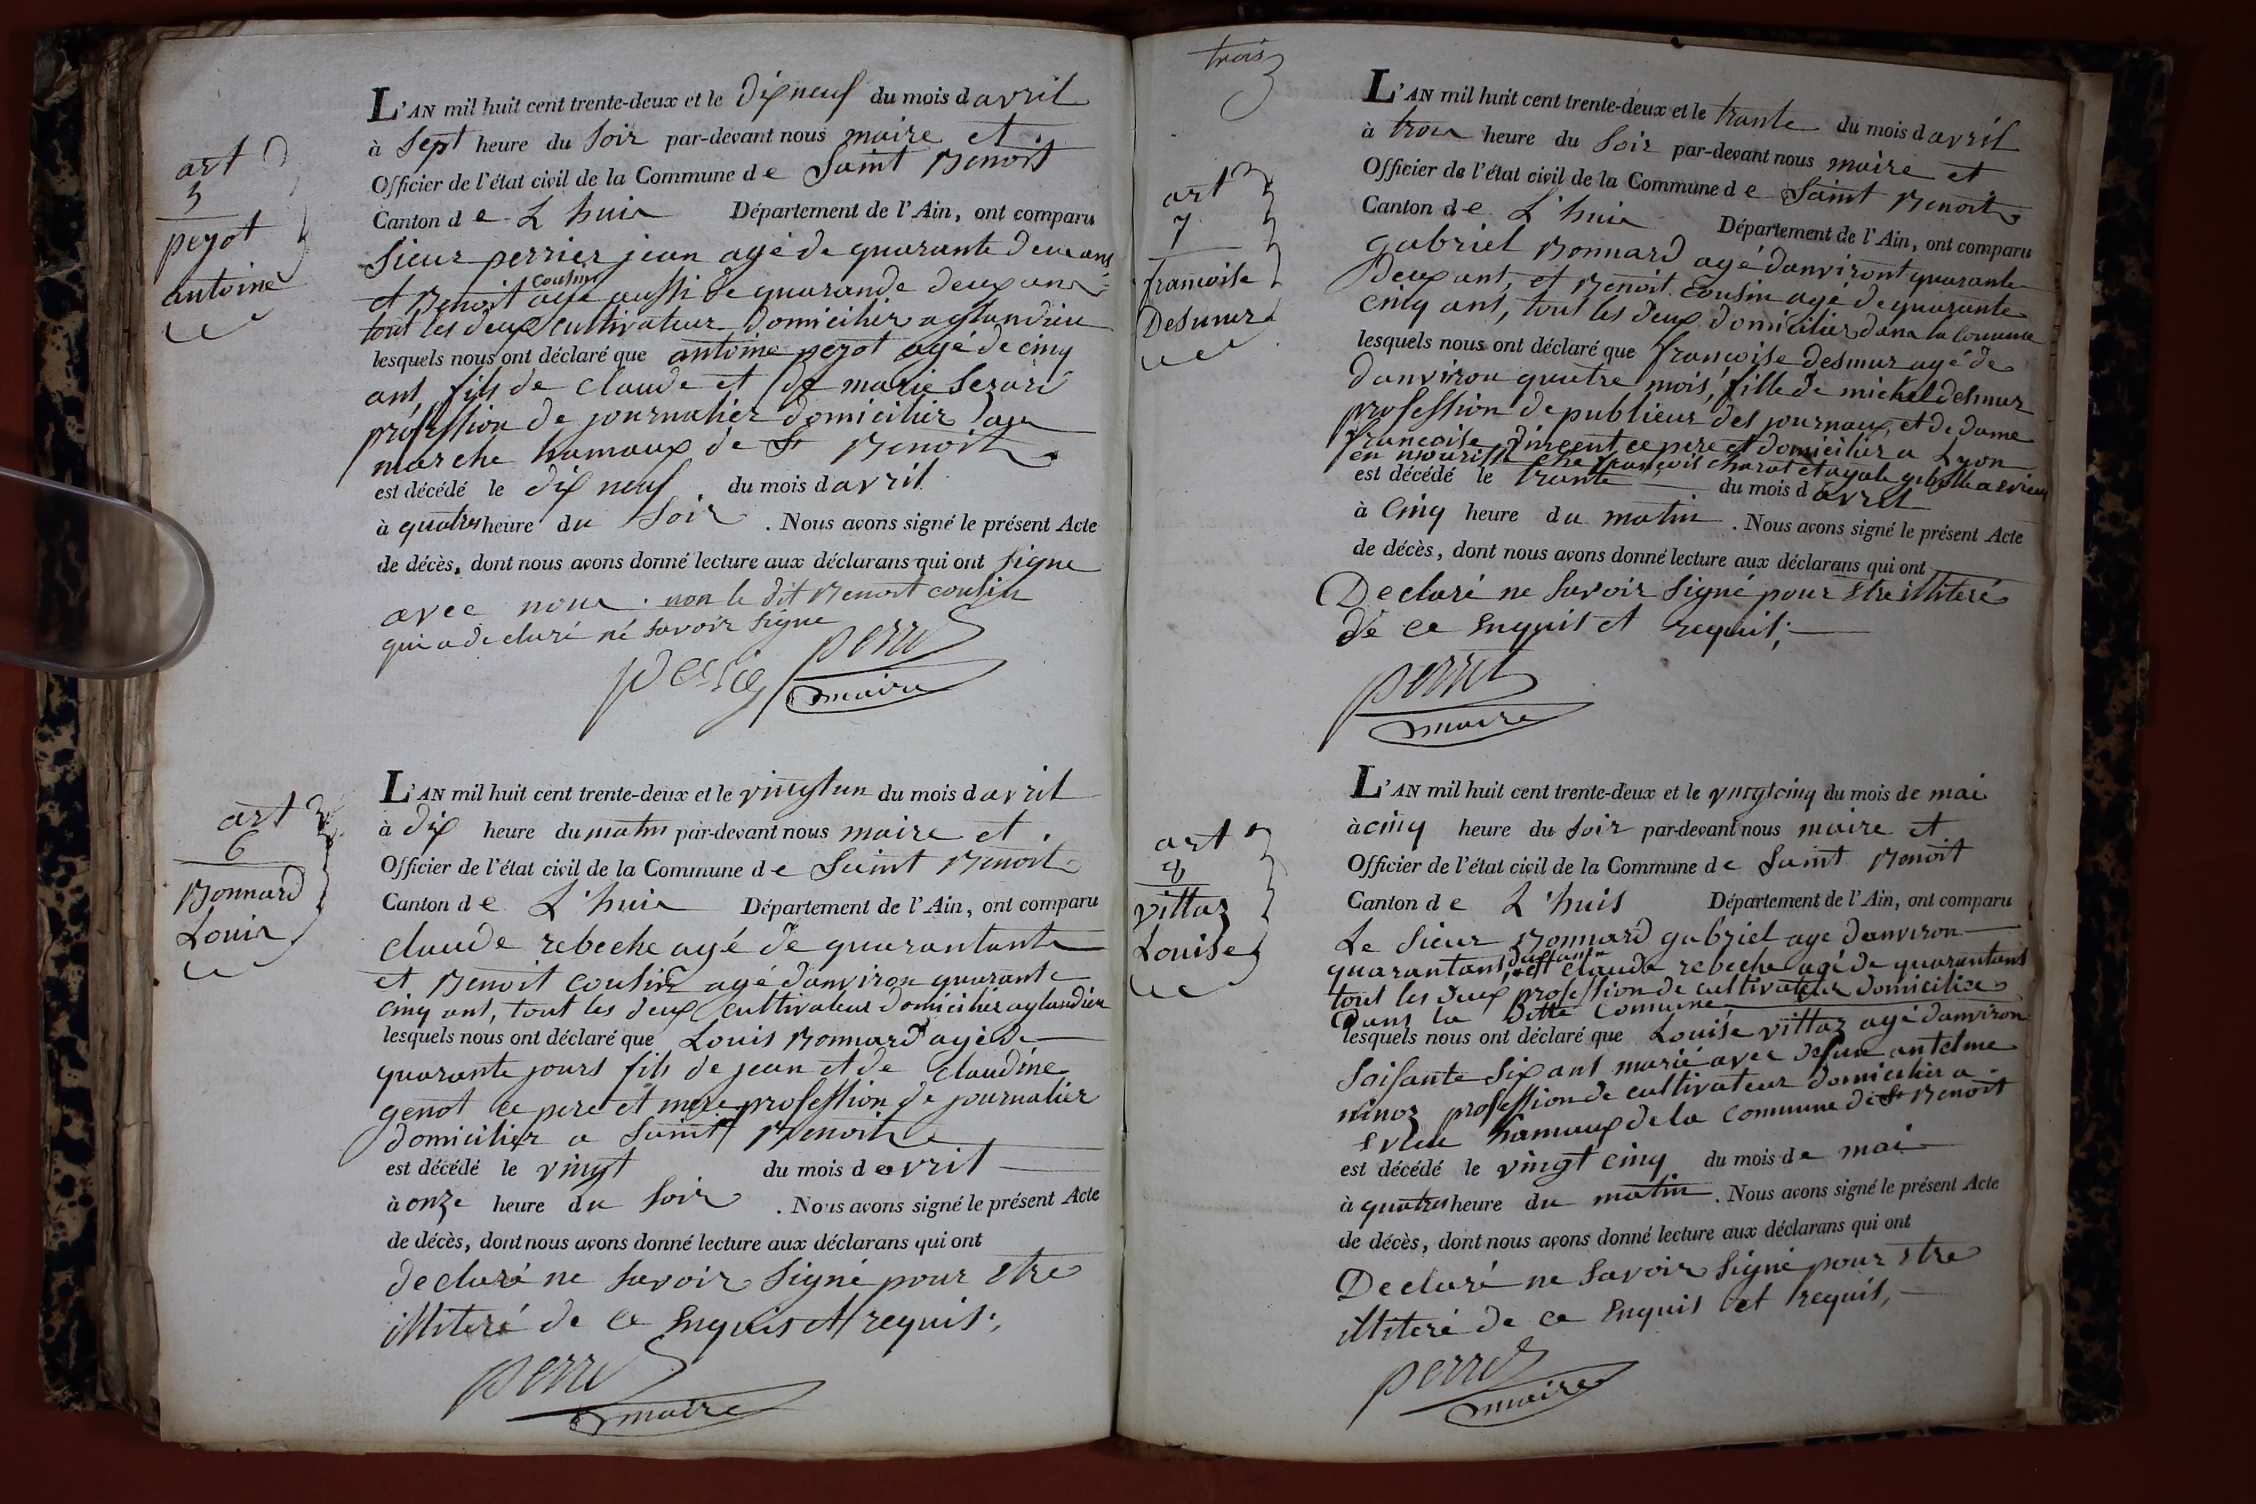 art
5
pezot
antoine
L'AN mil huit cent trente-deux et le dix neuf du mois d avril
à sept heure du soir par-devant nous maire et
Officier de l'état civil de la Commune de Saint Benoit
Canton de L huis Département de l'Ain, ont comparu
sieur perrier jean agé de quarante deux ans
et Benoit cousin agé aussi de quarande deux ans
tout les deux cultivateur domicilier a glandieu
lesquels nous ont déclaré que antoine pezot agé de cinq
ans, fils de claude et de marie
profession de journalier domicilier aux
marche hamaux de St Benoit
est décédé le dix neuf du mois d avril
à quatres heure du soir . Nous avons signé le présent Acte
de décès, dont nous avons donné lecture aux déclarans qui ont signe
avec nous . non le dit Benoit cousin
qui a declaré né savoir signe
perret
maire
art
6
Bonnard
Louis
L'AN mil huit cent trente-deux et le vingt un du mois d avril
à dix heure du matin par-devant nous maire et
Officier de l'état civil de la Commune de Saint Benoit
Canton de L'huis Département de l'Ain, ont comparu
claude rebeche agé de quarantante
et Benoit cousin agé danviron quarante
cinq ans, tout les deux cultivateur domicilier a glandieu
lesquels nous ont déclaré que Louis Bonnard agé de
quarante jours fils de jean et de claudine
genot ce pere et mere profession de journalier
domicilier a Saint Benoit
est décédé le vingt du mois d avril
à onze heure du soir . Nous avons signé le présent Acte
de décès, dont nous avons donné lecture aux déclarans qui ont
declaré ne savoir signé pour etre
illiteré de ce enquis et requis.
perret
maire
trois
art
7
francoise
Desmur
L'AN mil huit cent trente-deux et le trante du mois d avril
à trois heure du soir par-devant nous maire et
Officier de l'état civil de la Commune de Saint Benoit
Canton de L'huis Département de l'Ain, ont comparu
gabriel Bonnard agé danviront quarante
deux ans, et Benoit cousin agé de quarante
cinq ans, tout les deux domicilier dans la commune
lesquels nous ont déclaré que francoise desmur agé de
danviron quatre mois, fille de michel desmur
profession de publieur des journaux, et de dame
francoise vincent ce pere et domicilier a Lyon
en nourisse che françois charat et a evieu
est décédé le trante du mois d avril
à cinq heure du matin . Nous avons signé le présent Acte
de décès, dont nous avons donné lecture aux déclarans qui ont
Declaré ne savoir signé pour etre illiteré
de ce enquis et requis,
perret
maire
art
8
vittoz
Louise
L'AN mil huit cent trente-deux et le vingt cinq du mois de mai
à cinq heure du soir par-devant nous maire et
Officier de l'état civil de la Commune de Saint Benoit
Canton de L'huis Département de l'Ain, ont comparu
Le sieur Bonnard gabriel age danviron
quarantans, et claude rebeche agé de quarantans
tout les deux profession de cultivateur domicilier
dans la dette commune
lesquels nous ont déclaré que Louise vittoz agé danviron
soisante six ans marié avec defun antelme
ninoz profession de cultivateur domicilier a
evieu hamaux de la commune de St Benoit
est décédé le vingt cinq du mois de mai
à quatres heure du matin . Nous avons signé le présent Acte
de décès, dont nous avons donné lecture aux déclarans qui ont
Declaré ne savoir signé pour etre
illiteré de ce enquis et requis,
perret
maire